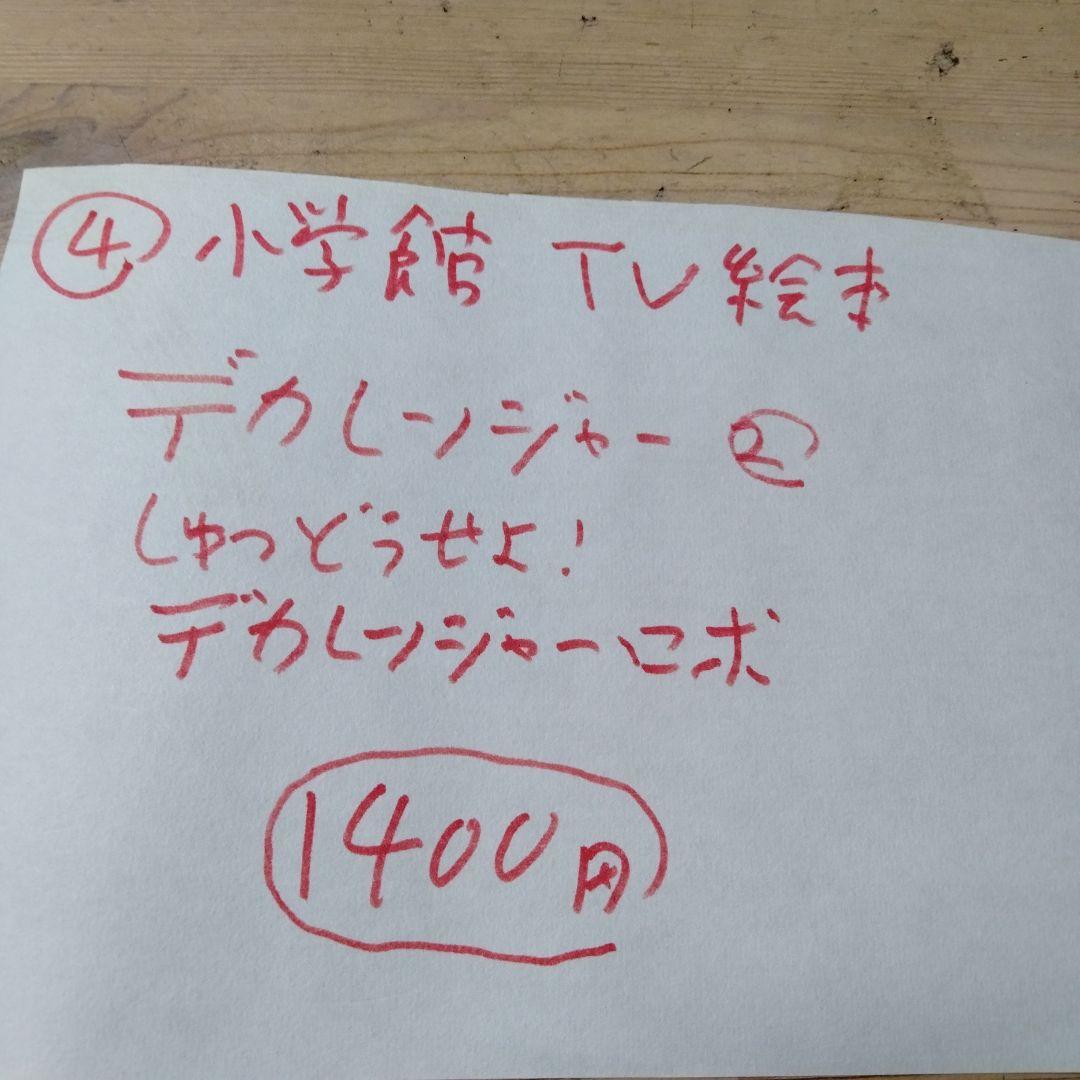 ④小学館 TV絵本
デカレンジャー②
しゅつどうせよ!
デカレンジャーロボ
1400円